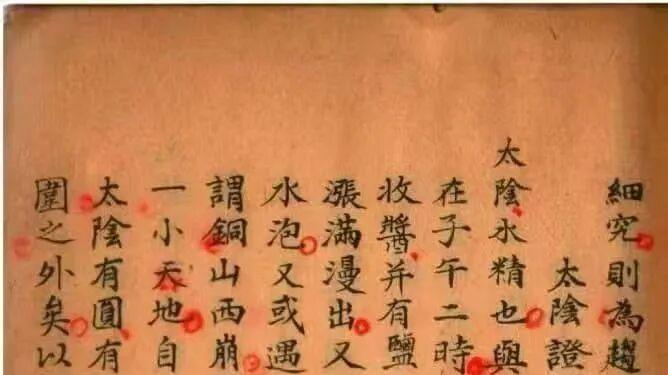 細究則為趨
太陰證
太陰水精也與
在子午二時
收醬并有鹽
漲滿漫出又
水泡又或遇
謂銅山西崩
一小天地自
太陰有圓有
圍之外矣以